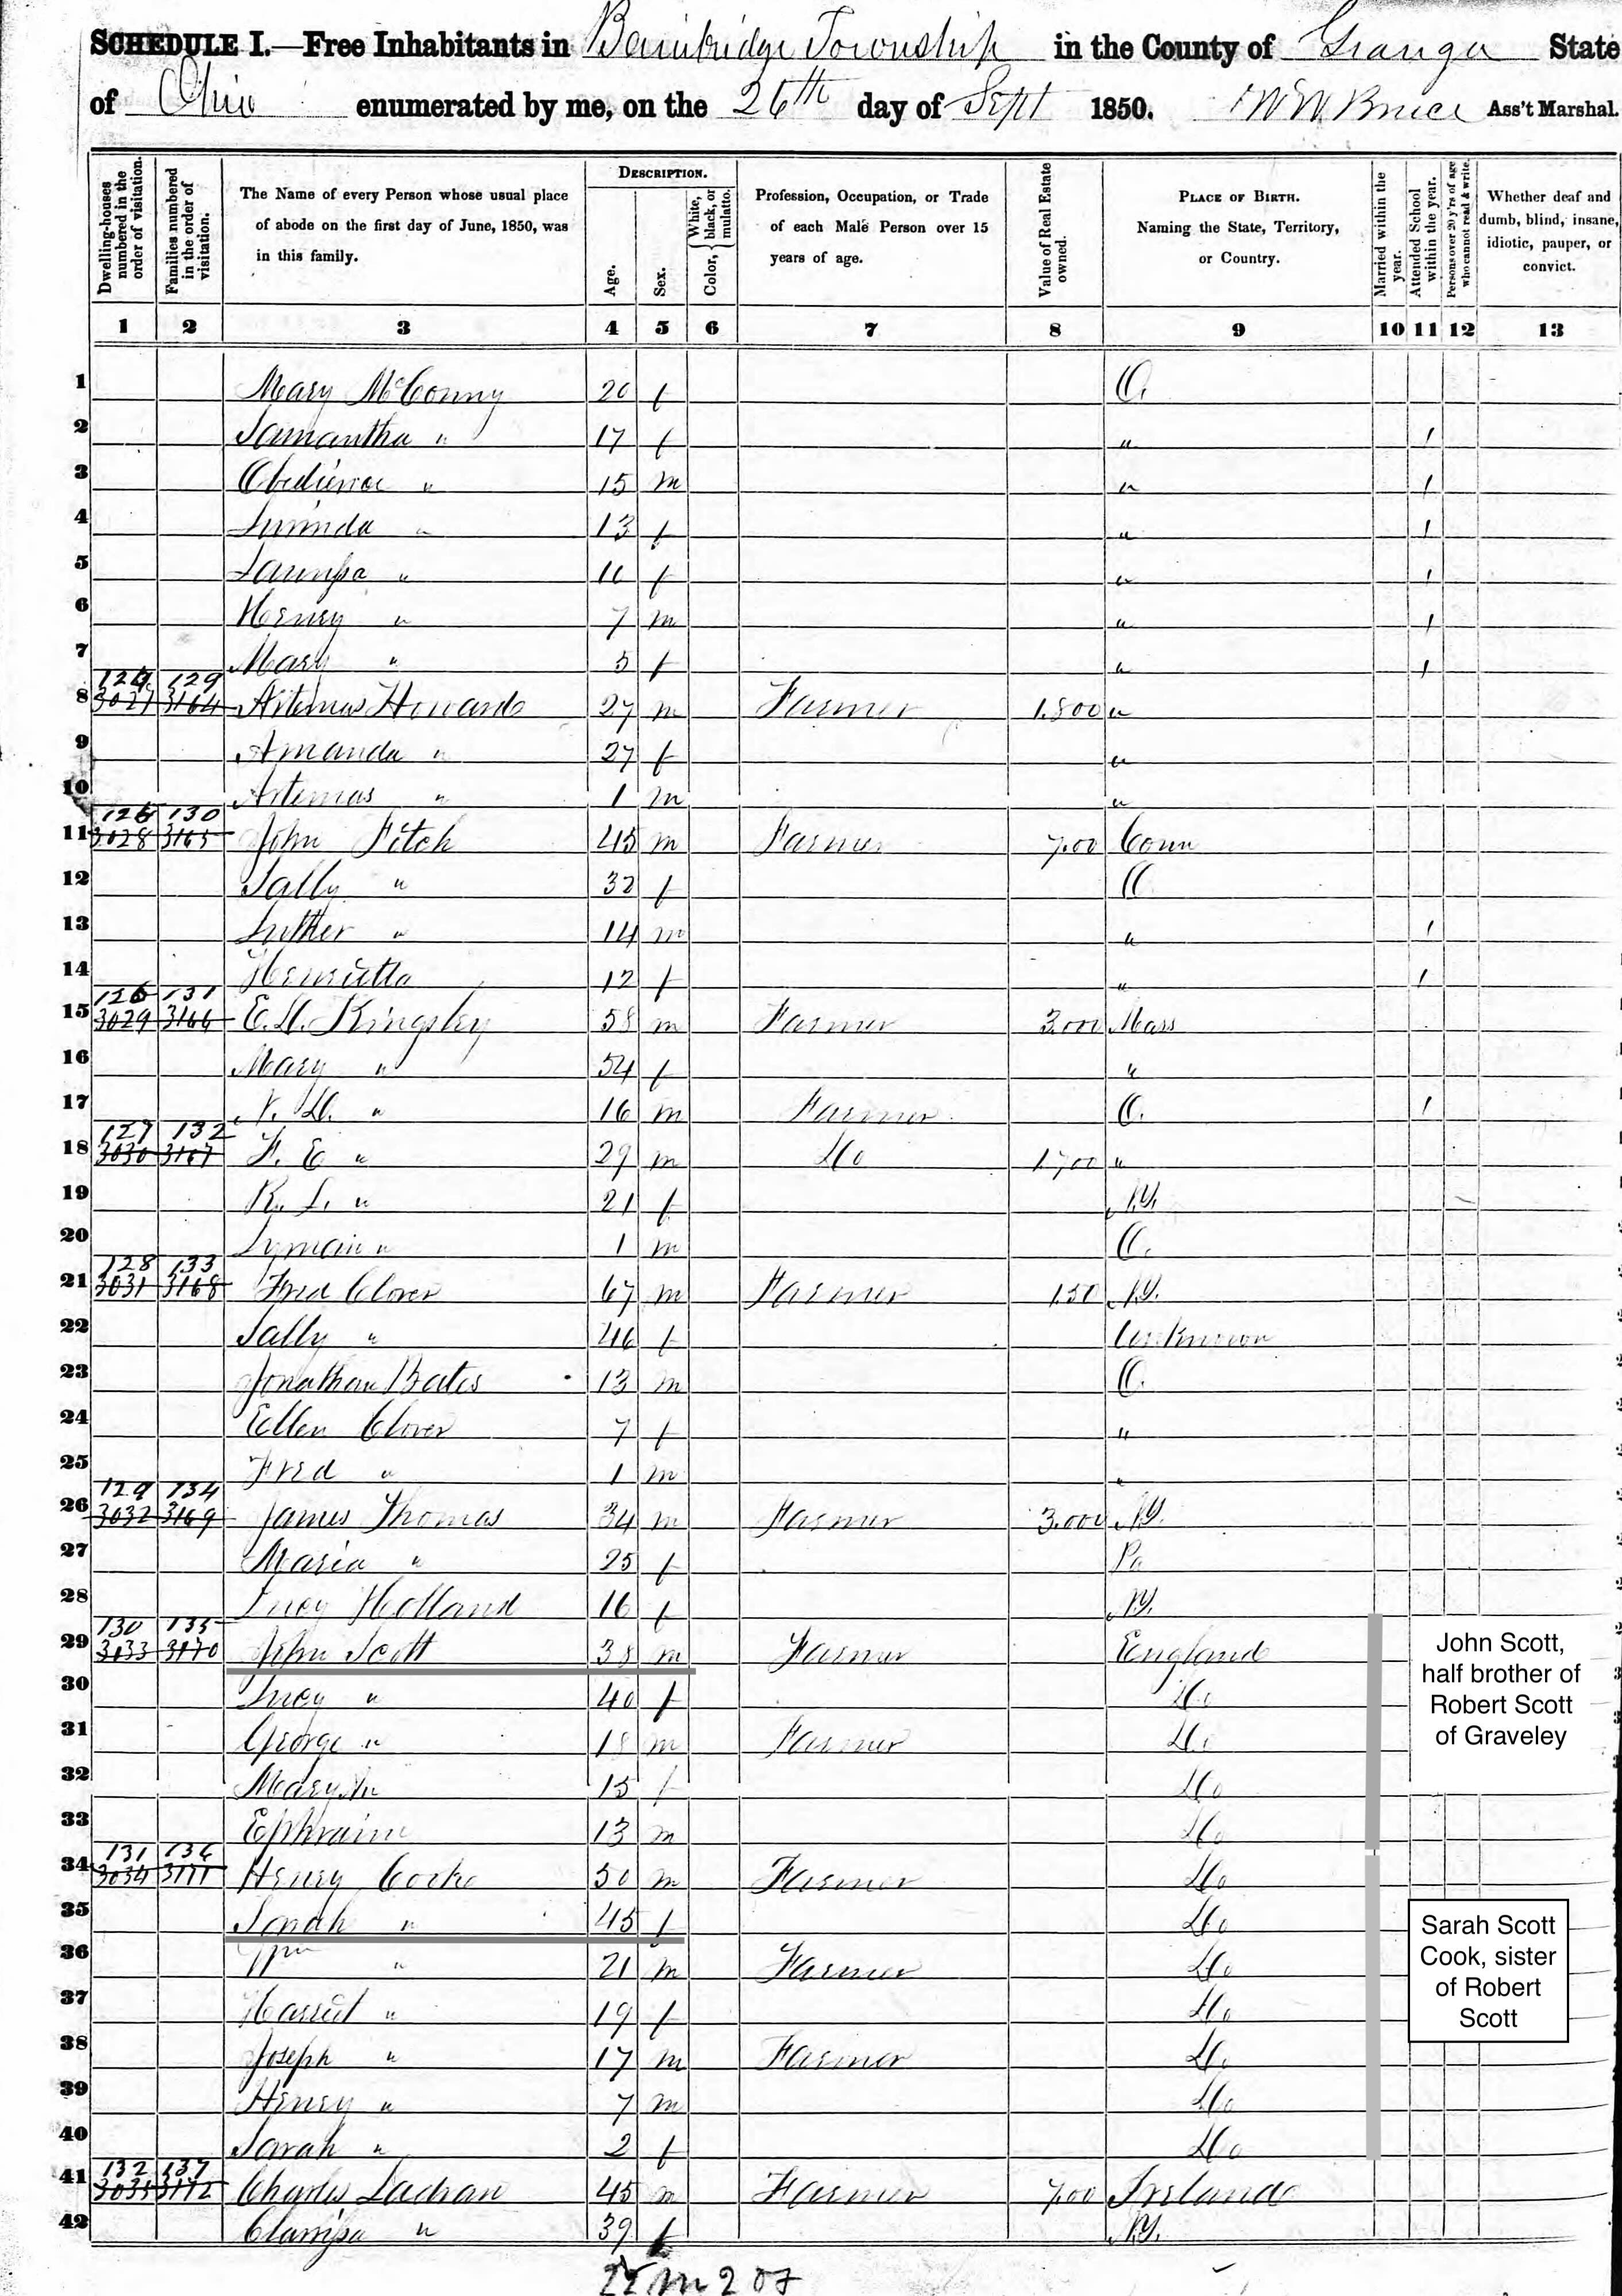 SCHEDULE I.—Free Inhabitants in Bainbridge Township in the County of Geauga State
of Ohio enumerated by me, on the 26th day of Sept 1850. W W Bruce Ass't Marshal.
Dwelling-houses numbered in the order of visitation.
Families numbered in the order of visitation.
The Name of every Person whose usual place of abode on the first day of June, 1850, was in this family.
DESCRIPTION.
Age.
Sex.
Color, { White, black, or mulatto.
Profession, Occupation, or Trade of each Male Person over 15 years of age.
Value of Real Estate owned.
PLACE OF BIRTH. Naming the State, Territory, or Country.
Married within the year.
Attended School within the year.
Persons over 20 y'rs of age who cannot read & write.
Whether deaf and dumb, blind, insane, idiotic, pauper, or convict.
1 2 3 4 5 6 7 8 9 10 11 12 13
1 Mary McConny 20 f O.
2 Samantha " 17 f " 1
3 Obedience " 15 m " 1
4 " 13 f " 1
5 " 11 f " 1
6 Henry " 7 m " 1
7 Mary " 5 f " 1
124 129
8 3027 3164 Artemas Howard 27 m Farmer 1.800 "
9 Amanda " 27 f "
10 Artemas " 1 m "
125 130
11 3028 3165 John Fitch 45 m Farmer 7.00 Conn
12 Sally " 32 f O
13 Luther " 14 m " 1
14 Henrietta 12 f " 1
126 131
15 3029 3166 Kingsley 58 m Farmer 3.000 Mass
16 Mary " 54 f "
17 " 16 m Farmer O. 1
127 132
18 3030 3167 F. E " 29 m Do 1.700 "
19 R. L. " 21 f N.Y.
20 Lyman " 1 m O.
128 133
21 3031 3168 Fred Clover 67 m Farmer 150 N.Y.
22 Sally " 46 f Unknown
23 Jonathan Bates 13 m O.
24 Ellen Clover 7 f "
25 Fred " 1 m "
129 134
26 3032 3169 James Thomas 34 m Farmer 3.000 N.Y.
27 Maria " 25 f Pa
28 Lucy Holland 16 f N.Y.
130 135
29 3033 3170 John Scott 38 m Farmer England
30 Lucy " 40 f Do
31 George " 18 m Farmer Do
32 Mary " 15 f Do
33 Ephraim 13 m Do
131 136
34 3034 3171 Henry Cooke 50 m Farmer Do
35 Sarah " 45 f Do
36 Wm " 21 m Farmer Do
37 Harriet " 19 f Do
38 Joseph " 17 m Farmer Do
39 Henry " 7 m Do
40 Sarah " 2 f Do
132 137
41 3035 3172 Charles 45 m Farmer 7.00 Ireland
42 Clarissa " 39 f N.Y.
John Scott,
half brother of
Robert Scott
of Graveley
Sarah Scott
Cook, sister
of Robert
Scott